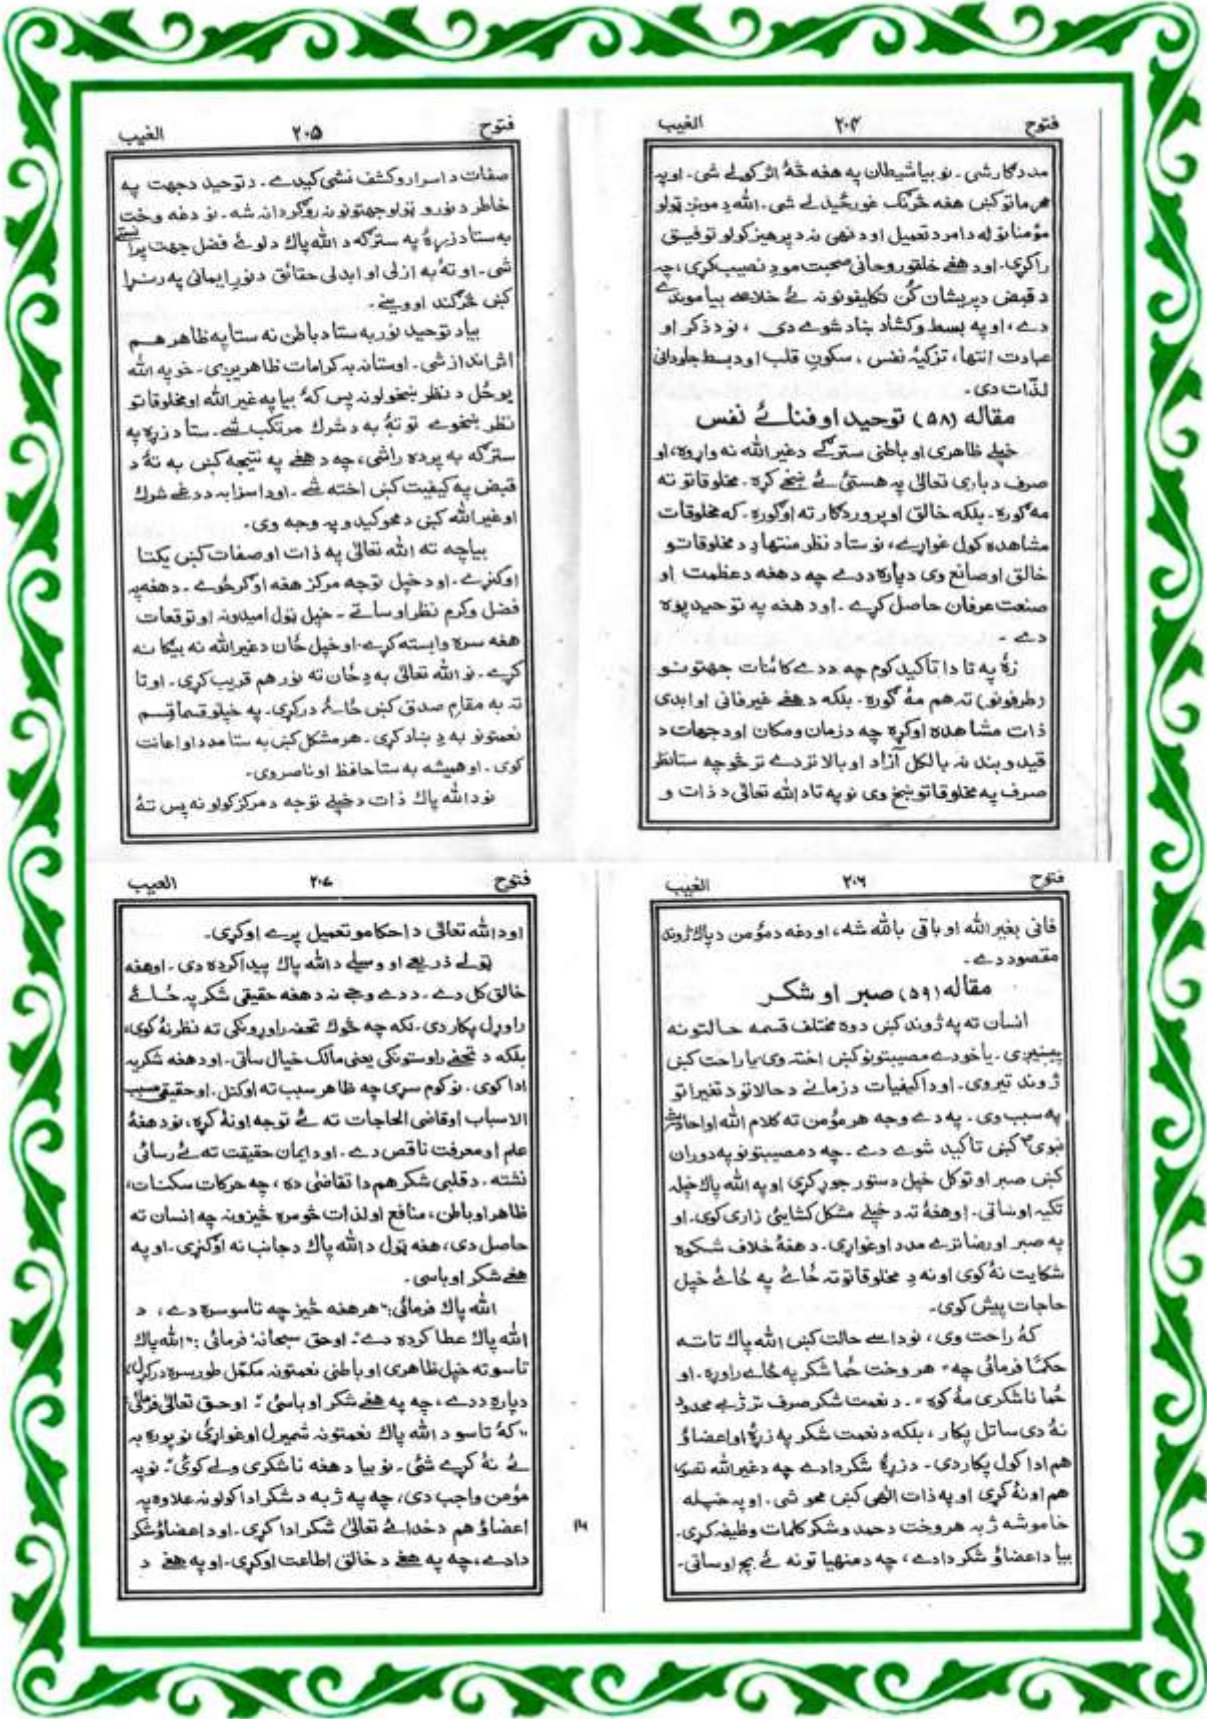 فتوح ۲۰۴ الغیب
مددګار شی ۔ نو بیا شیطان په هغه څۀ اثر کولے شی ۔ او په
هرماتو کښ هغه څرنګ غورځیدلے شی ۔ الله دِ مونږ ټولو
مؤمنانو له د امر د تعمیل او د نهی نه د پرهیز کولو توفیق
راکړی ۔ او د هغے خلقو روحانی صحبت مودِ نصیب کړی، چه
د قبض د پریشان کُن تکلیفونو نه ئے خلاصے بیا موندے
دے، او په بسط و کشاد ښاد شوے دی ، نو د ذکر او
عبادت انتها، تزکیۂ نفس ، سکونِ قلب او د بسط جاودانی
لذّات دی ۔
مقاله (۵۸) توحید او فنائے نفس
خپلے ظاهری او باطنی سترګے د غیر الله نه واړوه، او
صرف د باری تعالیٰ په هستیٔ ئے ښخے کړه ۔ مخلوقاتو ته
مه ګوره ۔ بلکه خالق او پروردګار ته اوګوره ۔ که مخلوقات
مشاهده کول غواړے، نو ستا د نظر منتها دِ د مخلوقاتو
خالق او صانع وی دپاره ددے چه د هغه د عظمت او
صنعت عرفان حاصل کړے ۔ او د هغه په توحید پوه
دے ۔
زۀ په تا دا تأکید کوم چه ددے کائنات جهتونو
(طرفونو) ته هم مۀ ګوره ۔ بلکه د هغے غیر فانی او ابدی
ذات مشاهده اوکړه چه د زمان و مکان او د جهات د
قید و بند نه بالکل آزاد او بالاتر دے تر څو چه ستا نظر
صرف په مخلوقاتو ښخ وی نو په تا د الله تعالیٰ د ذات و
فتوح ۲۰۵ الغیب
صفات د اسرارو کشف نشی کیدے ۔ د توحید د جهت په
خاطر د نورو ټولو جهتونو نه روګردانه شه ۔ نو دغه وخت
به ستا د زړۀ په سترګه د الله پاك د لوئے فضل جهت پرا نستے
شی ۔ او تۀ به ازلی او ابدلی حقائق د نورِ ایمانی په رنړا
کښ څرګند اووینے ۔
بیا د توحید نور به ستا د باطن نه ستا په ظاهر هم
اثر انداز شی ۔ او ستا نه به کرامات ظاهریږی ۔ خو په الله
یو ځل د نظر ښخولو نه پس کۀ بیا په غیر الله او مخلوقاتو
نظر ښخوے نو تۀ به د شرك مرتکب شے ۔ ستا د زړه په
سترګه به پرده راشی، چه د هغے په نتیجه کښ به تۀ د
قبض په کیفیت کښ اخته شے ۔ او دا سزا به ددغے شرك
او غیر الله کښ د محو کیدو په وجه وی ۔
بیا چه ته الله تعالیٰ په ذات او صفات کښ یکتا
اوګنړے ۔ او د خپل توجه مرکز هغه اوګرځوے ۔ د هغه په
فضل و کرم نظر اوساتے ۔ خپل ټول امیدونه او توقعات
هغه سره وابسته کړے ۔ او خپل ځان د غیر الله نه بیګانه
کړے ۔ نو الله تعالیٰ به دِ ځان ته نور هم قریب کړی ۔ او تا
ته به مقامِ صدق کښ ځائے درکړی ۔ په خپلو قسما قسم
نعمتونو به دِ ښاد کړی ۔ هر مشکل کښ به ستا مدد او اعانت
کوی ۔ او همیشه به ستا حافظ او ناصر وی ۔
نو د الله پاك ذات د خپلے توجه د مرکز کولو نه پس تۀ
فتوح ۲۰۶ الغیب
فانی بغیر الله او باقی بالله شه، او دغه د مؤمن د پاك ژوند
مقصود دے ۔
مقاله (۵۹) صبر او شکر
انسان ته په ژوند کښ دوه مختلف قسمه حالتونه
پیښیږی ۔ یا خو دے مصیبتونو کښ اخته وی یا راحت کښ
ژوند تیروی ۔ او دا کیفیات د زمانے د حالاتو د تغیراتو
په سبب وی ۔ په دے وجه هر مؤمن ته کلام الله او احادیث
نبوی کښ تاکید شوے دے ۔ چه د مصیبتونو په دوران
کښ صبر او توکل خپل دستور جوړ کړی او په الله پاك خپله
تکیه اوساتی ۔ او هغۀ ته د خپلے مشکل کشایئ زاری کوی ۔ او
په صبر او رضا ترے مدد اوغواړی ۔ د هغۀ خلاف شکوه
شکایت نۀ کوی او نه دِ مخلوقاتو ته ځائے په ځائے خپل
حاجات پیش کوی ۔
کۀ راحت وی، نو داسے حالت کښ الله پاك تاته
حکمًا فرمائی چه " هر وخت ځما شکر په ځاے راوړه ۔ او
ځما ناشکری مۀ کوه " ۔ د نعمت شکر صرف تر ژبے محدود
نۀ دی ساتل پکار ، بلکه د نعمت شکر په زړۀ او اعضاؤ
هم ادا کول پکار دی ۔ د زړۀ شکر دا دے چه د غیر الله تصور
هم اونۀ کړی او په ذات الٰهی کښ محو شی ۔ او په خپله
خاموشه ژبه هر وخت د حمد و شکر کلمات وظیفه کړی ۔
بیا د اعضاؤ شکر دا دے، چه د منهیاتو نه ئے بچ اوساتی ۔
فتوح ۲۰۷ الغیب
او د الله تعالیٰ د احکامو تعمیل پرے اوکړی ۔
ټولے ذریعے او وسیلے د الله پاك پیدا کرده دی ۔ او هغه
خالق کل دے ۔ ددے وجے نه د هغه حقیقی شکر په ځائے
راوړل پکار دی ۔ لکه چه څوك تحفه راوړونکی ته نظر نۀ کوی،
بلکه د تحفے راوستونکی یعنی مالك خیال ساتی ۔ او د هغه شکریه
ادا کوی ۔ نو کوم سړی چه ظاهر سبب ته اوکتل ۔ او حقیقی مسبب
الاسباب او قاضی الحاجات ته ئے توجه اونۀ کړه، نو د هغۀ
علم او معرفت ناقص دے ۔ او د ایمان حقیقت ته ئے رسائی
نشته ۔ د قلبی شکر هم دا تقاضیٰ ده ، چه حرکات سکنات،
ظاهر او باطن، منافع او لذات څومره څیزونه چه انسان ته
حاصل دی، هغه ټول د الله پاك د جانب نه اوګنړی ۔ او په
هغے شکر اوباسی ۔
الله پاك فرمائی: "هر هغه څیز چه تاسو سره دے ، د
الله پاك عطا کرده دے" ۔ او حق سبحانهٗ فرمائی : "الله پاك
تاسو ته خپل ظاهری او باطنی نعمتونه مکمّل طور سره درکړل،
دپاره ددے، چه په هغے شکر اوباسئ " ۔ او حق تعالیٰ فرمائی :
"کۀ تاسو د الله پاك نعمتونه شمیرل اوغواړئ نو پوره به
ئے نۀ کړے شئ ۔ نو بیا د هغه ناشکری ولے کوئ" ۔ نو په
مؤمن واجب دی، چه په ژبه د شکر ادا کولو نه علاوه په
اعضاؤ هم د خدائے تعالیٰ شکر ادا کړی ۔ او د اعضاؤ شکر
دا دے، چه په هغے د خالق اطاعت اوکړی ۔ او په هغے د
۱۴